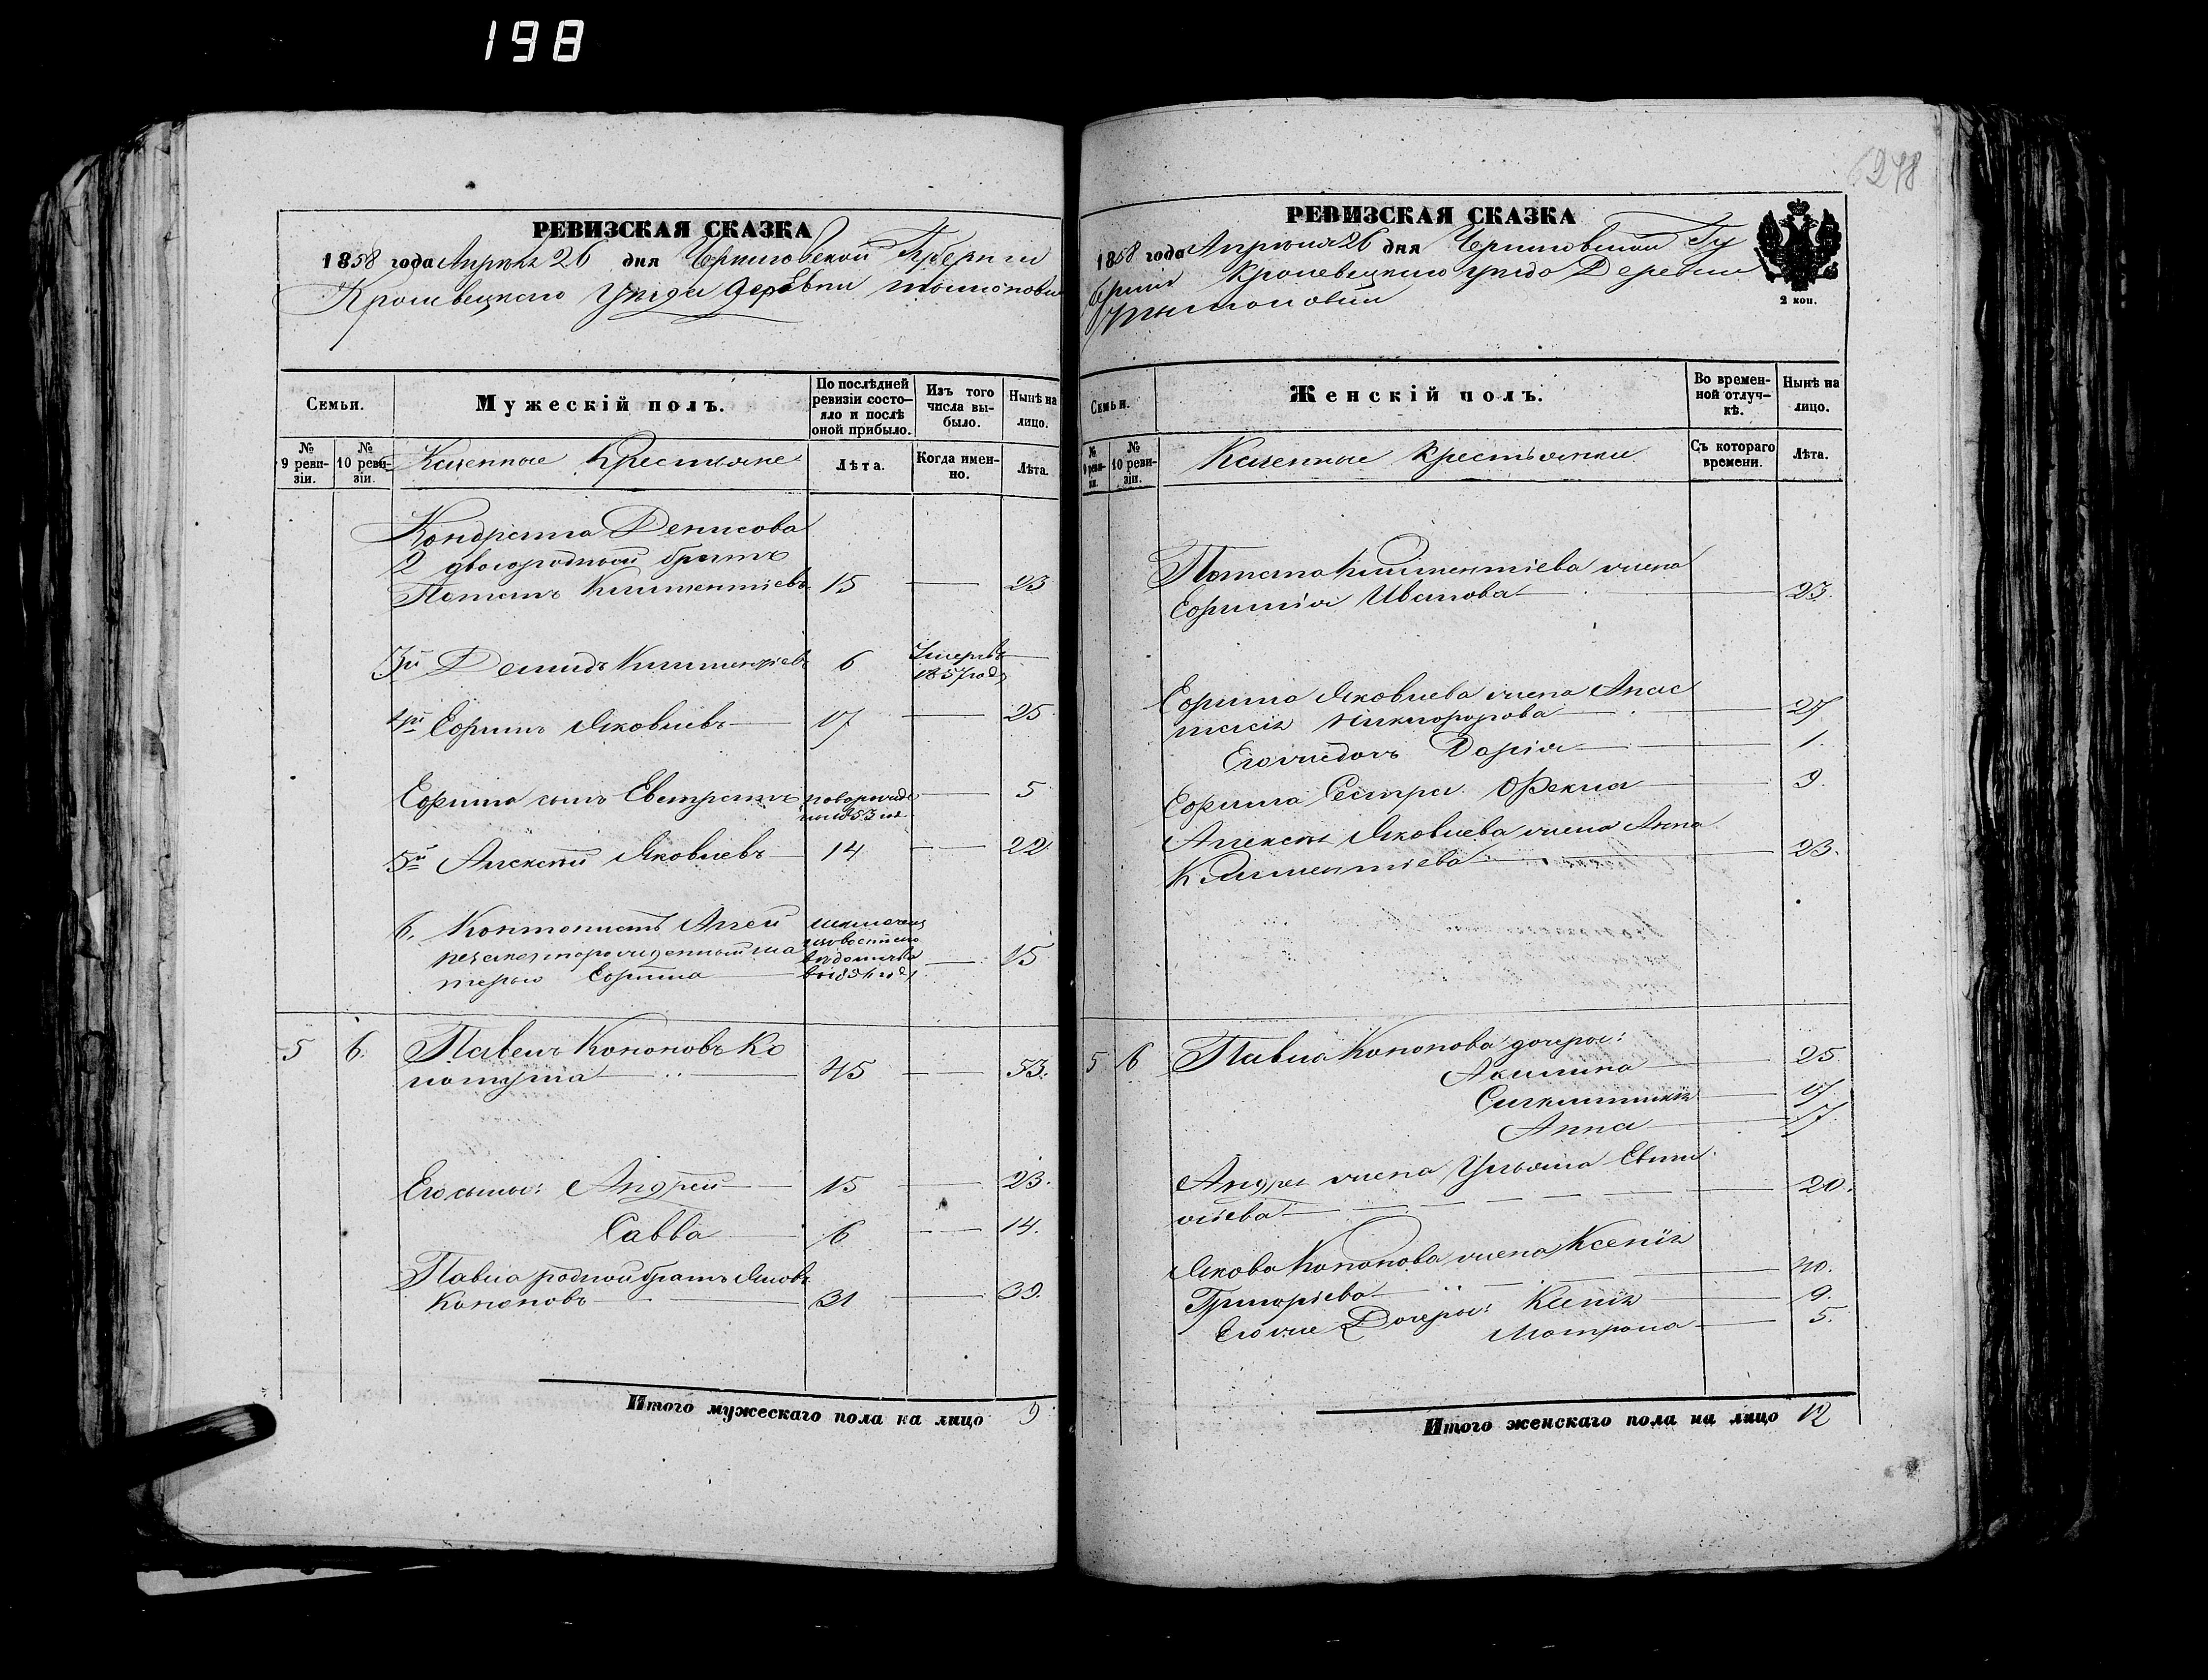 198
РЕВИЗСКАЯ СКАЗКА
1858 года Апреля 26 дня Черниговской Губернии
Кролевецкаго Уезда деревни
Семьи.
Мужескій полъ.
По послѣдней ревизіи состояло и послѣ оной прибыло.
Изъ того числа выбыло.
Нынѣ на лицо.
№ 9 ревизіи.
№ 10 ревизіи.
Казенные Крестьяне
Лѣта.
Когда именно.
Лѣта.
Кондрата Денисова
2 двоюродный братъ
Потапъ Климентіевъ 15 — 23
3й Демидъ Климентіевъ 6 Умеръ въ 1857 году
4й Ефимъ Яковлевъ 17 — 25
Ефима сынъ Евстратъ новорожде 1853 — 5
5й Алексѣй Яковлевъ 14 — 22
6. Кантонистъ Агей
незаконнорожденный ма
терью 15
5 6. Павелъ Кононовъ Ко
45 — 53.
Его сыны: Андрей 15 — 23.
Савва 6 — 14.
Павла родной братъ Яковъ
Кононовъ 31 — 39.
Итого мужескаго пола на лицо 9
6248
РЕВИЗСКАЯ СКАЗКА
1858 года Апреля 26 дня Черниговской Гу
берніи Кролевецкаго уезда Деревни
2 коп.
Семьи.
Женскій полъ.
Во временной отлучкѣ.
Нынѣ на лицо.
№ 9 ревизіи.
№ 10 ревизіи.
Казенные Крестьянки
Съ котораго времени.
Лѣта.
Потапа Климентіева жена
Ефимія Иванова — 23.
Ефима Яковлева жена Анас
тасія Никифорова — 27
Его же дочь Дарія — 1.
Ефима Сестра Фекла — 9.
Алексѣя Яковлева жена Анна
Климентіева — 23.
5 6 Павла Кононова дочери:
Акилина 25
17
Анна 7
Андрея жена Ульяна
20.
Якова Кононова жена Ксенія
Григоріева — 40.
Его же Дочери: Ксенія 9.
Матрона 5.
Итого женскаго пола на лицо 12